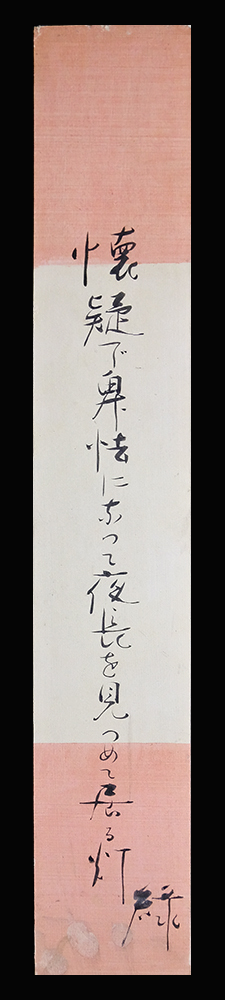 懐疑で卑怯になつて夜長を見つめて居る灯